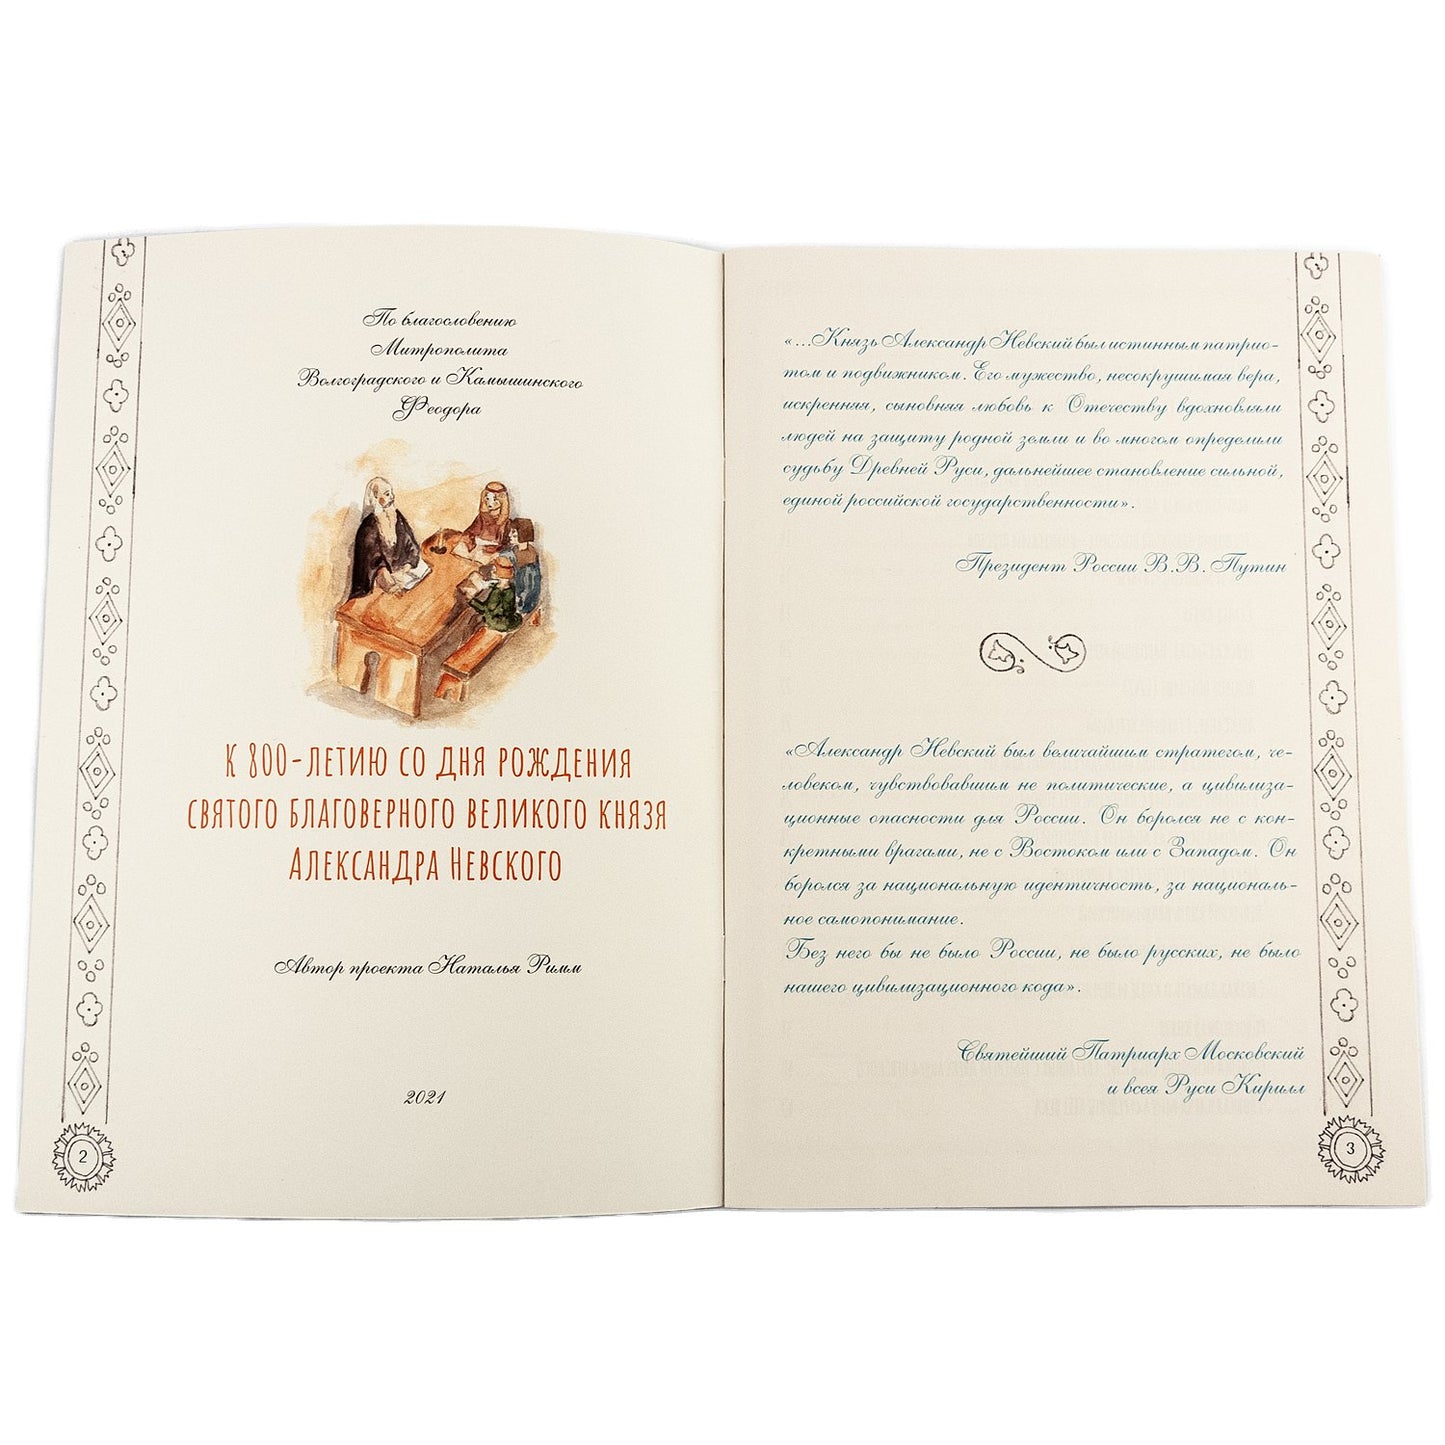 По благословению
Митрополита
Волгоградского и Камышинского
Феодора
К 800-летию со дня рождения
святого благоверного великого князя
Александра Невского
Автор проекта Наталья Римм
2021
2
«...Князь Александр Невский был истинным патрио-
том и подвижником. Его мужество, несокрушимая вера,
искренняя, сыновняя любовь к Отечеству вдохновляли
людей на защиту родной земли и во многом определили
судьбу Древней Руси, дальнейшее становление сильной,
единой российской государственности».
Президент России В.В. Путин
«Александр Невский был величайшим стратегом, че-
ловеком, чувствовавшим не политические, а цивилиза-
ционные опасности для России. Он боролся не с кон-
кретными врагами, не с Востоком или с Западом. Он
боролся за национальную идентичность, за националь-
ное самопонимание.
Без него бы не было России, не было русских, не было
нашего цивилизационного кода».
Святейший Патриарх Московский
и всея Руси Кирилл
3